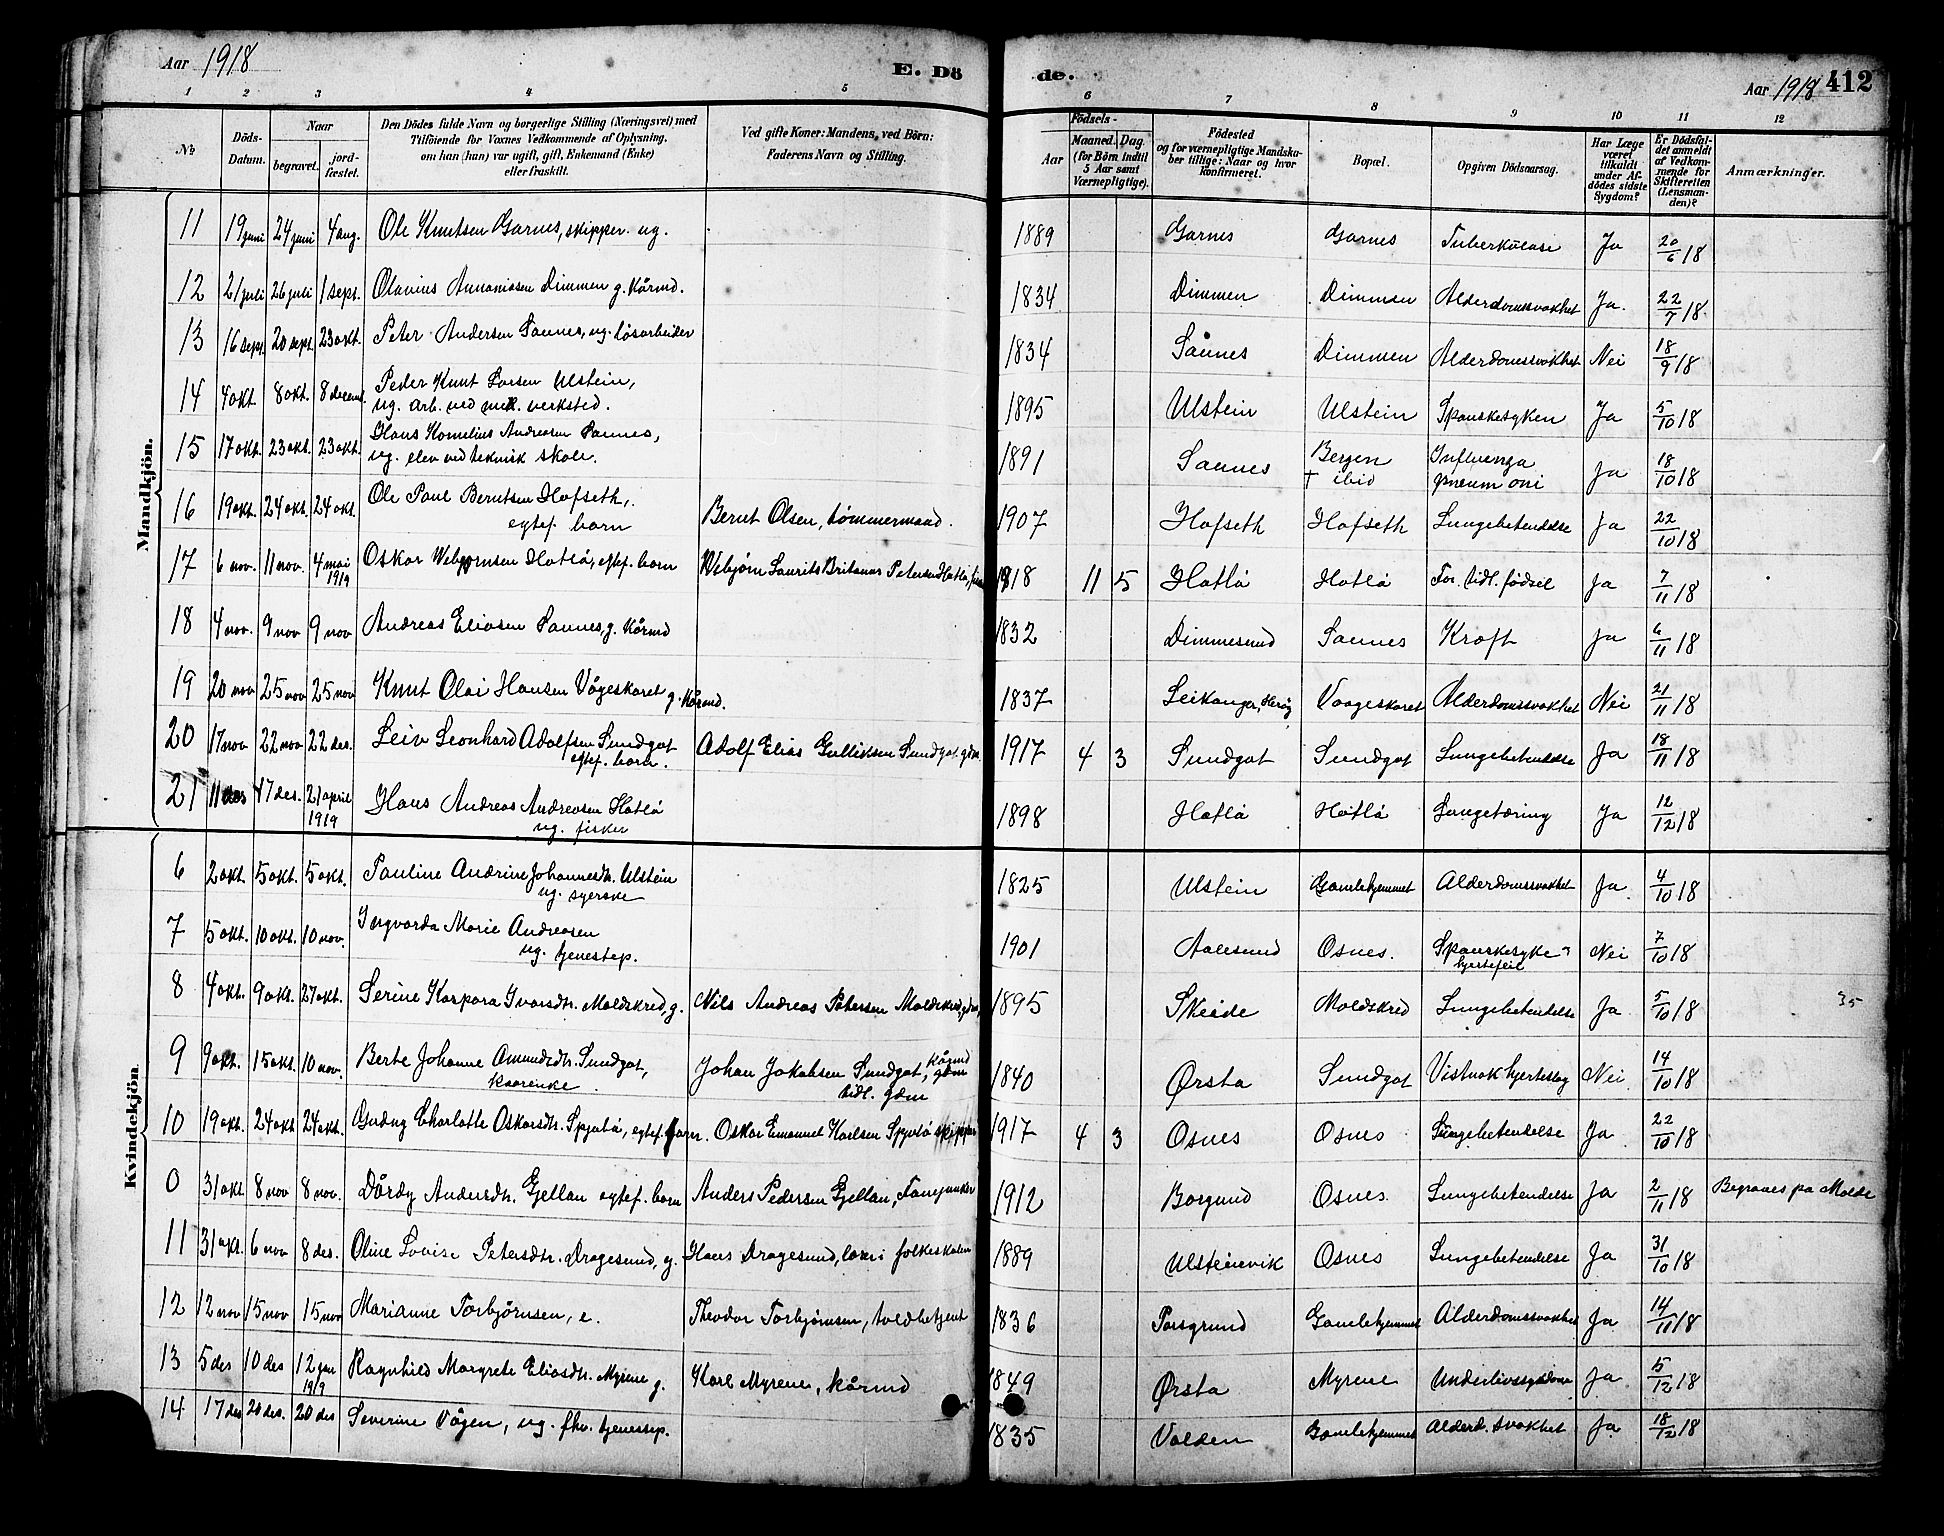 Aar 1918
E. Dö
de.
Aar 1918 412
1 2 3 4 5 6 7 8 9 10 11 12
No
Döds-Datum.
Naar
begravet.
jord-fæstet.
Den Dödes fulde Navn og borgerlige Stilling (Næringsvei) med
Tilföiende for Voxnes Vedkommende af Oplysning,
om han (hun) var ugift, gift, Enkemand (Enke)
eller fraskilt.
Ved gifte Koner: Mandens, ved Börn:
Faderens Navn og Stilling.
Födsels-
Aar
Maaned. Dag.
(for Börn indtil
5 Aar samt
Værnepligtige).
Födested
og for værnepligtige Mandska-
ber tillige: Naar og hvor
konfirmeret.
Bopæl.
Opgiven Dödsaarsag.
Har Læge
været
tilkaldt
under Af-
dødes sidste
Sygdom?
Er Dödsfal-
det anmeldt
af Vedkom-
mende for
Skifteretten
(Lensman-
den)?
Anmærkninger.
Mandkjön.
11 19 juni 24 juni 4 aug. Ole Knutsen Garnes, skipper. ug. 1889 Garnes Garnes Tuberkulose Ja 20/6 18
12 21 juli 26 juli 1 sept. Olavius Annaniasen Dimmen g. kårmd. 1834 Dimmen Dimmen Alderdomssvakhet Ja. 22/7 18.
13 16 sept. 20 sept. 23 okt. Peter Andersen Saunes, ug. løsarbeider 1834 Saunes Dimmen Alderdomssvakhet Nei 18/9 18
14 4 okt. 8 okt. 8 decemb. Peder Knut Larsen Ulstein,
ug. arb. ved mek. verksted. 1895 Ulstein Ulstein Spanskesyken Ja 5/10 18
15 17 okt. 23 okt. 23 okt. Hans Kornelius Andreasen Saunes,
ug. elev ved teknisk skole. 1891 Saunes Bergen
† ibid Influenza
pneumoni Ja 18/10 18
16 19 okt. 24 okt. 24 okt. Ole Paul Berntsen Hofseth,
egtef. barn Bernt Olsen, tømmermand. 1907 Hofseth Hofseth Lungebetendelse Ja 22/10 18
17 6 nov. 11 nov. 4 mai
1919 Oskar Webjørnsen Hatlø, egtef. barn Webjørn Laurits Britanus Petersen Hatlø, 1918 11 5 Hatlø Hatlø For tidl. fødsel Ja 7/11 18
18 4 nov. 9 nov 9 nov Andreas Eliasen Saunes, g. kårmd 1832 Dimmesund Saunes Kræft Ja 6/11 18
19 20 nov 25 nov 25 nov Knut Olai Hansen Vågeskaret g. kårmd. 1837 Leikanger, Herøy Vaageskaret Alderdomssvakhet Nei 21/11 18
20 17 nov 22 nov 22 des. Leiv Leonhard Adolfsen Sundgot
egtef. barn. Adolf Elias Gulliksen Sundgot, gdm. 1917 4 3 Sundgot Sundgot Lungebetendelse Ja 18/11 18
21 11 des 17 des. 21 april
1919 Hans Andreas Andreasen Hatlø
ug. fisker 1898 Hatlø Hatlø Lungetæring Ja 12/12 18
Kvindekjön.
6 2 okt. 5 okt. 5 okt. Pauline Andrine Johannesdtr. Ulstein
ug. syerske 1825 Ulstein Gamlehjemmet Alderdomssvakhet Ja. 4/10 18
7 5 okt. 10 okt. 10 nov. Ingvarda Marie Andreasen
ug. tjenestep. 1901 Aalesund Osnes. Spanskesyke
hjertefeil Nei 7/10 18
8 4 okt. 9 okt. 27 okt. Serine Kaspara Ivarsdtr. Moldskred, g. Nils Andreas Petersen Moldskred, gdm, 1895 Skeide Moldskred Lungebetendelse Ja 5/10 18 35
9 9 okt. 15 okt. 10 nov. Berte Johanne Amundsdtr. Sundgot,
kaarenke. Johan Jakobsen Sundgot, kårmd
tidl. gdm 1840 Ørsta Sundgot Vistnok hjerteslag Nei 14/10 18
10 19 okt. 24 okt. 24 okt. Gudny Charlotte Oskarsdtr. Spjutø, egtef. barn. Oskar Emanuel Karlsen Spjutø skipper 1917 4 3 Osnes Osnes Lungebetendelse Ja 22/10 18
0 31 okt 8 nov 8 nov. Dårdy Andersdtr. Gjellan egtef. barn Anders Pedersen Gjellan, Fanejunker 1912 Borgund Osnes. Lungebetendelse Ja 2/11 18 Begraves på Molde
11 31 okt. 6 nov 8 des. Oline Lovise Petersdtr. Dragesund, g. Hans Dragesund, lærer i folkeskolen 1889 Ulsteinvik Osnes Lungebetendelse Ja 31/10 18
12 12 nov 15 nov 15 nov Marianne Torbjørnsen, e. Theodor Torbjørnsen, toldbetjent 1836 Porsgrund Gamlehjemmet Alderdomssvakhet Ja 14/11 18
13 5 des 10 des 12 jan
1919 Ragnhild Margrete Eliasdtr. Myrene g. Karl Myrene, kårmd 1849 Ørsta Myrene Underlivssygdom Ja 15/12 18
14 17 des 20 des. 20 des Severine Vågen, ug. fhv. tjenestep. 1835 Volden Gamlehjemmet Alderd. svakhet Ja 18/12 18